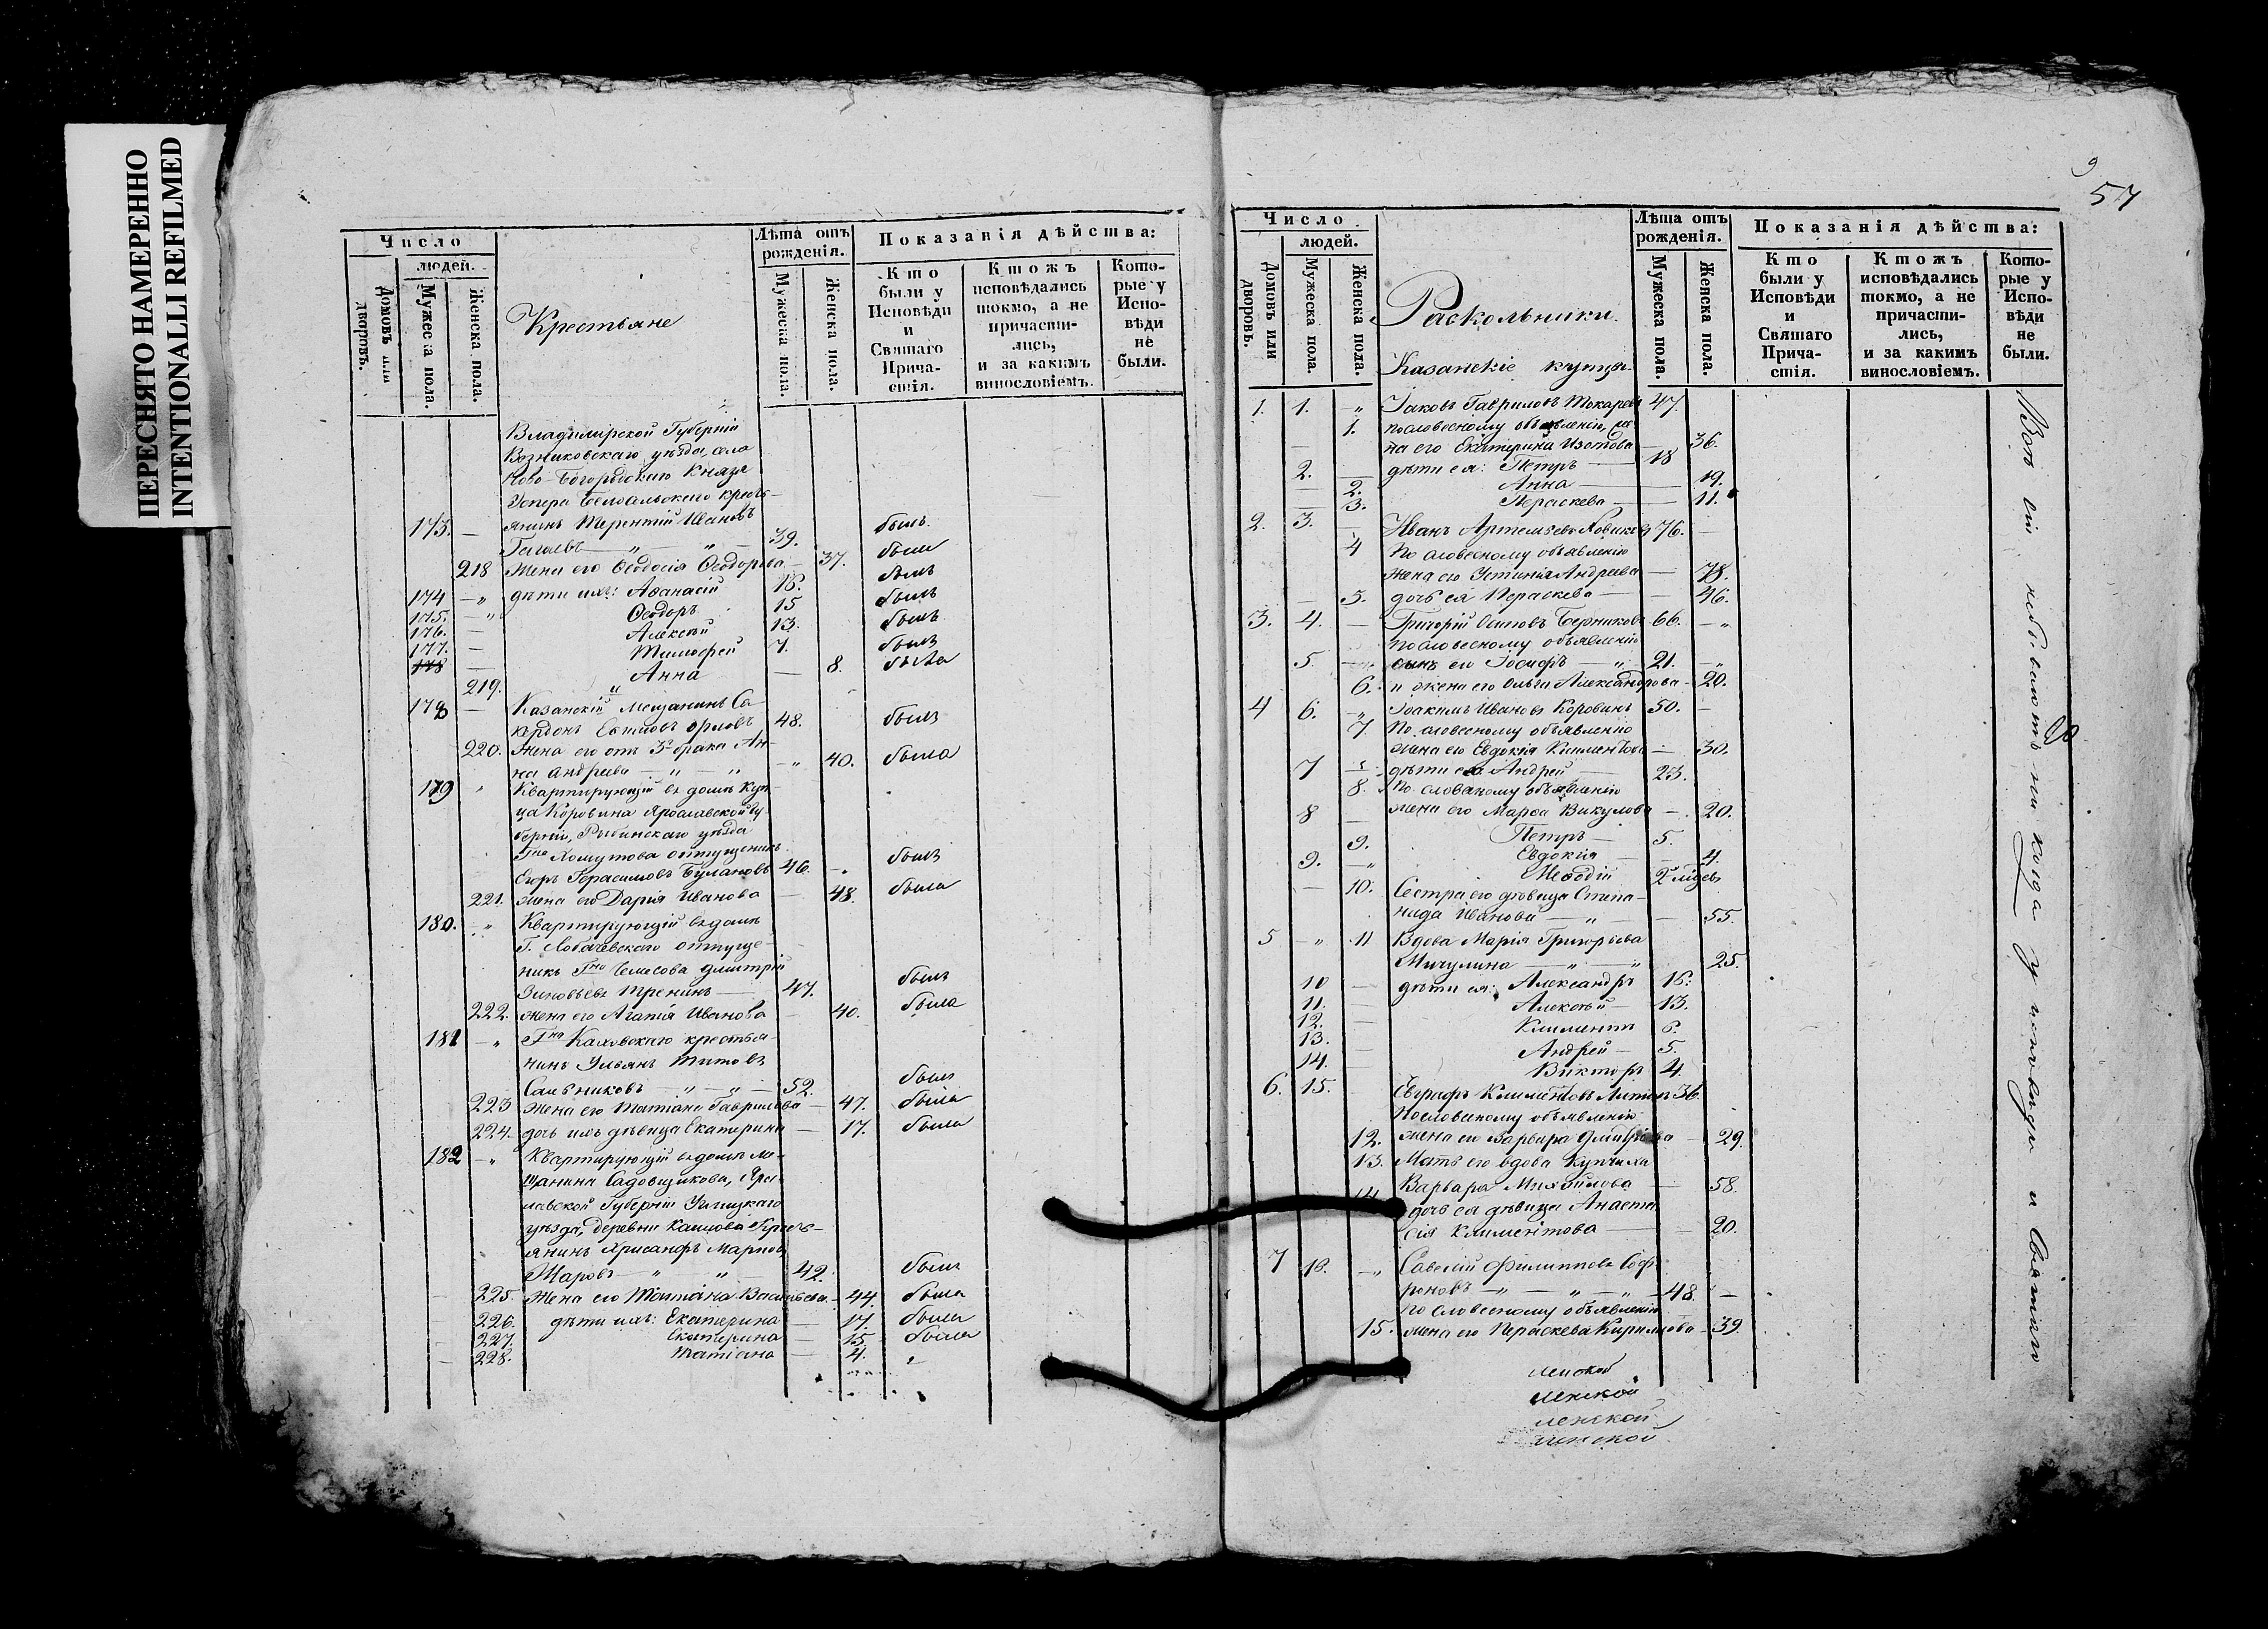 ПЕРЕСНЯТО НАМЕРЕННО
INTENTIONALLI REFILMED
Число
людей.
Домовъ или дворовъ.
Мужеска пола.
Женска пола.
Крестьяне
Лѣта отъ рожденія.
Мужеска пола.
Женска пола.
Показанія дѣйства:
Кто были у Исповѣди и Святаго Причастія.
Ктожъ исповѣдались токмо, а не причастились, и за какимъ винословіемъ.
Которые у Исповѣди не были.
Владимірской Губерніи
Вязниковскаго уѣзда, села
Князя
173. — янинъ Терентій Ивановъ былъ.
39.
218 Жена его Ѳеодосія Ѳеодорова — 37. была
174 — „ дѣти ихъ: Аѳанасій 18. былъ
175. — „ Ѳеодоръ 15 былъ
176. — Алексѣй 13. былъ
177. — Тимоѳей 7. былъ
178 — Анна — 8. была
219.
178 — Казанскій Мещанинъ Са-
орловъ 48. былъ
220. Жена его отъ 3го брака Ан-
на Андреева — „ — „ — „ 40. была
179 „ Квартирующій въ домѣ куп-
ца Коровина Ярославской Гу-
берніи, Рыбинскаго уѣзда
Гна Хомутова отпущеникъ
Егоръ Герасимовъ Булановъ 46. —. былъ
221. жена его Дарія Иванова — 48. была
180. — „ Квартирующій въ домѣ
Г. Лобачевскаго отпуще-
никъ Гна Чемесова Дмитрій
Зиновьевъ Тренинъ — 47. былъ
222. жена его Агапія Иванова — 40. была
181 — „ Гна Каховскаго крестья-
нинъ Ульянъ Титовъ
Сальниковъ — „ — „ — 52. былъ
223 Жена его Татіана Гаврилова — 47. была
224. дочь ихъ дѣвица Екатерина — 17. была
182 — „ Квартирующій въ домѣ ме-
щанина Садовщикова, Яро-
лавской Губерніи Углицкаго
уѣзда, деревни
янинъ Хрисанфъ Марковъ
Жаровъ — „ — „ — 42. былъ
225. Жена его Татіана Васильева. — 44. была
226. дѣти ихъ: Екатерина — 17. была
227. Екатерина — 15. была
228. Татіана — 4. „
57
Число
людей.
Домовъ или дворовъ.
Мужеска пола.
Женска пола.
Раскольники.
Казанскіе купцы.
Лѣта отъ рожденія.
Мужеска пола.
Женска пола.
Показанія дѣйства:
Кто были у Исповѣди и Святаго Причастія.
Ктожъ исповѣдались токмо, а не причастились, и за какимъ винословіемъ.
Которые у Исповѣди не были.
1. 1. „ Іаковъ Гавриловъ Токаревъ 47.
1. пословесному объявленію, же-
— на его Екатерина Изотова — 36.
2. — дѣти ея: Петръ — 18
— 2. Анна — — 19.
— 3. Параскева — — 11.
2. 3. — Иванъ Артемьевъ Новиковъ 76. —
4 По словесному объявленію
жена его Устинія Андреева — 78.
— 5. дочь ея Параскева — — 46.
3. 4. — Григорій Осиповъ 66. — „
по словесному объявленію
5. — сынъ его Іосифъ — „ 21. — „
6. и жена его Ольга Александрова — 20.
4 6. „ Іоакимъ Ивановъ Коровинъ 50. —
7 По словесному объявленію
жена его Евдокія Климентова — 30.
7 дѣти его Андрей — 23.
8. по словесному объявленію
8 — жена его Марѳа Викулова — 20.
9. Петръ — 5.
9. — „ Евдокія — 4.
— 10. Меѳодій 2 мѣсяц
Сестра его дѣвица Степа-
нида Иванова — „ — 55.
5 — „ 11 Вдова Марія Григорьева
Мичулина — „ — „ 25.
10 — дѣти ея: Александръ 16.
11. — Алексѣй — 13.
12. — Климентъ 6.
13. — Андрей — 5.
14. — Викторъ 4.
6. 15. Евграфъ Климентовъ 36.
По словесному объявленію
12. жена его Варвара Дмитріева — 29.
13. Мать его вдова купчиха
14. Варвара Михайлова — 58.
дочь ея дѣвица Анаста-
сія Климентова — — 20.
7 16. — „ Савелій Филипповъ Соф-
роновъ — „ — „ — „ — 48. —
по словесному объявленію
15. жена его Параскева Кирилова — 39.
Всѣ сіи небываютъ ни когда у исповѣди и Святаго
ленской
ленской
ленской
ленской